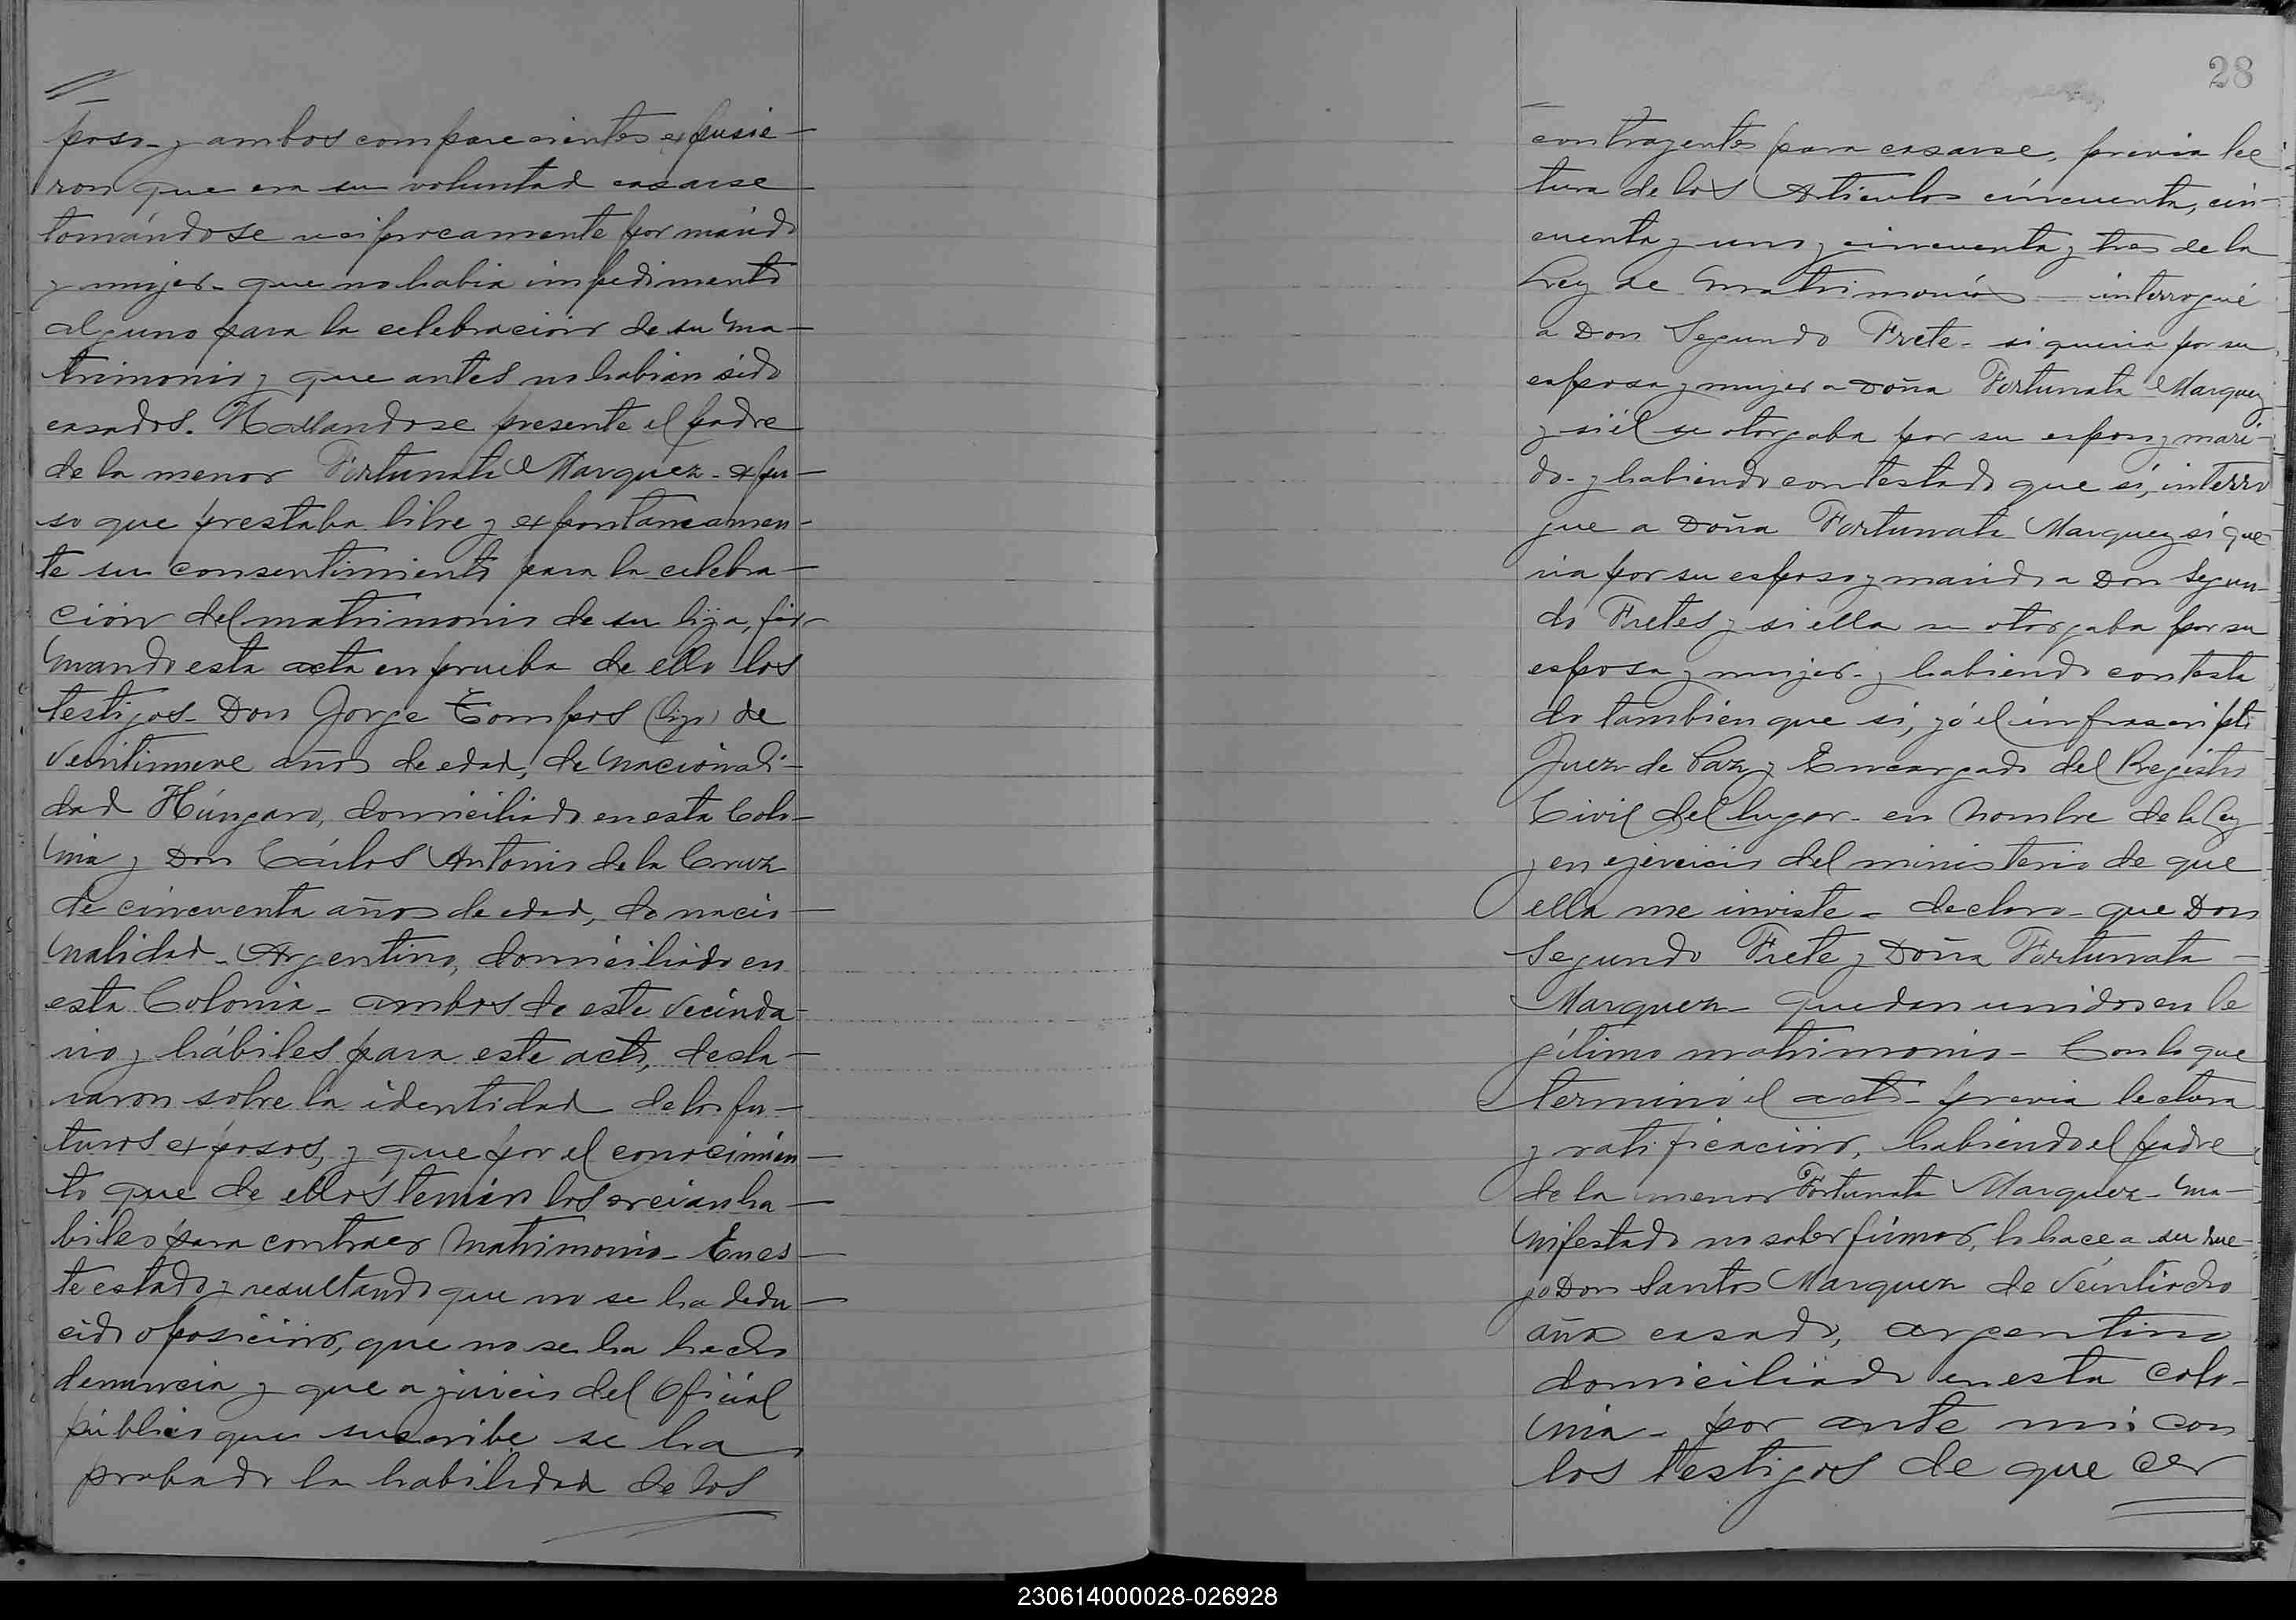 poso - y ambos comparecientes expusie-
ron que era su voluntad casarse
tomándose reciprocamente por marido
y mujer - que no habia impedimento
alguno para la celebracion de su ma-
trimonio y que antes no habian sido
casados. Hallandose presente el padre
de la menor Fortunata Marquez - expu-
so que prestaba libre y expontaneamen-
te su consentimiento para la celebra-
ción del matrimonio de su hija, fir-
mando esta acta en prueba de ello los
testigos - Don Jorge Tompos (hijo) de
veintinueve años de edad, de nacionali-
dad Húngaro, domiciliado en esta Colo-
nia y Don Cárlos Antonio de la Cruz
de cincuenta años de edad, de nacio-
nalidad - Argentino, domiciliado en
esta Colonia - ambos de este vecinda-
rio y hábiles para este acto, decla-
raron sobre la identidad de los fu-
turos exposos, y que por el conocimien-
to que de ellos tenian los creian ha-
biles para contraer Matrimonio - En es-
te estado y resultando que no se ha dedu-
cido oposicion, que no se ha hecho
denuncia y que a juicio del Oficial
público que suscribe se ha
probado la habilidad de los
28
contrayentes para casarse, previa lec
tura de los Articulos cincuenta, cin-
cuenta y uno y cincuenta y tres de la
Ley de Matrimonio - interrogué
a Don Segundo Frete - si queria por su
esposa y mujer a Doña Fortunata Marquez
y si él se otorgaba por su esposo y mari-
do - y habiendo contestado que sí, interro
gue a Doña Fortunata Marquez si que
ria por su esposo y marido a Don Segun-
do Fretes y si ella se otorgaba por su
esposa y mujer - y habiendo contesta
do tambien que si, yó el infrascripto
Juez de Paz y Encargado del Registro
Civil del lugar - en nombre de la Ley
y en ejercicio del ministerio de que
ella me inviste - declaro - que Don
Segundo Frete y Doña Fortunata -
Marquez - quedan unidos en le
gítimo matrimonio - Con lo que
terminó el acto - previa lectura
y ratificación, habiendo el padre
de la menor Fortunata Marquez - ma-
nifestado no saber firmar, lo hace a su rue-
go Don Santos Marquez de veintiocho
años casado, argentino
domiciliado en esta colo-
nia - por ante mi con
los testigos de que cer
230614000028-026928